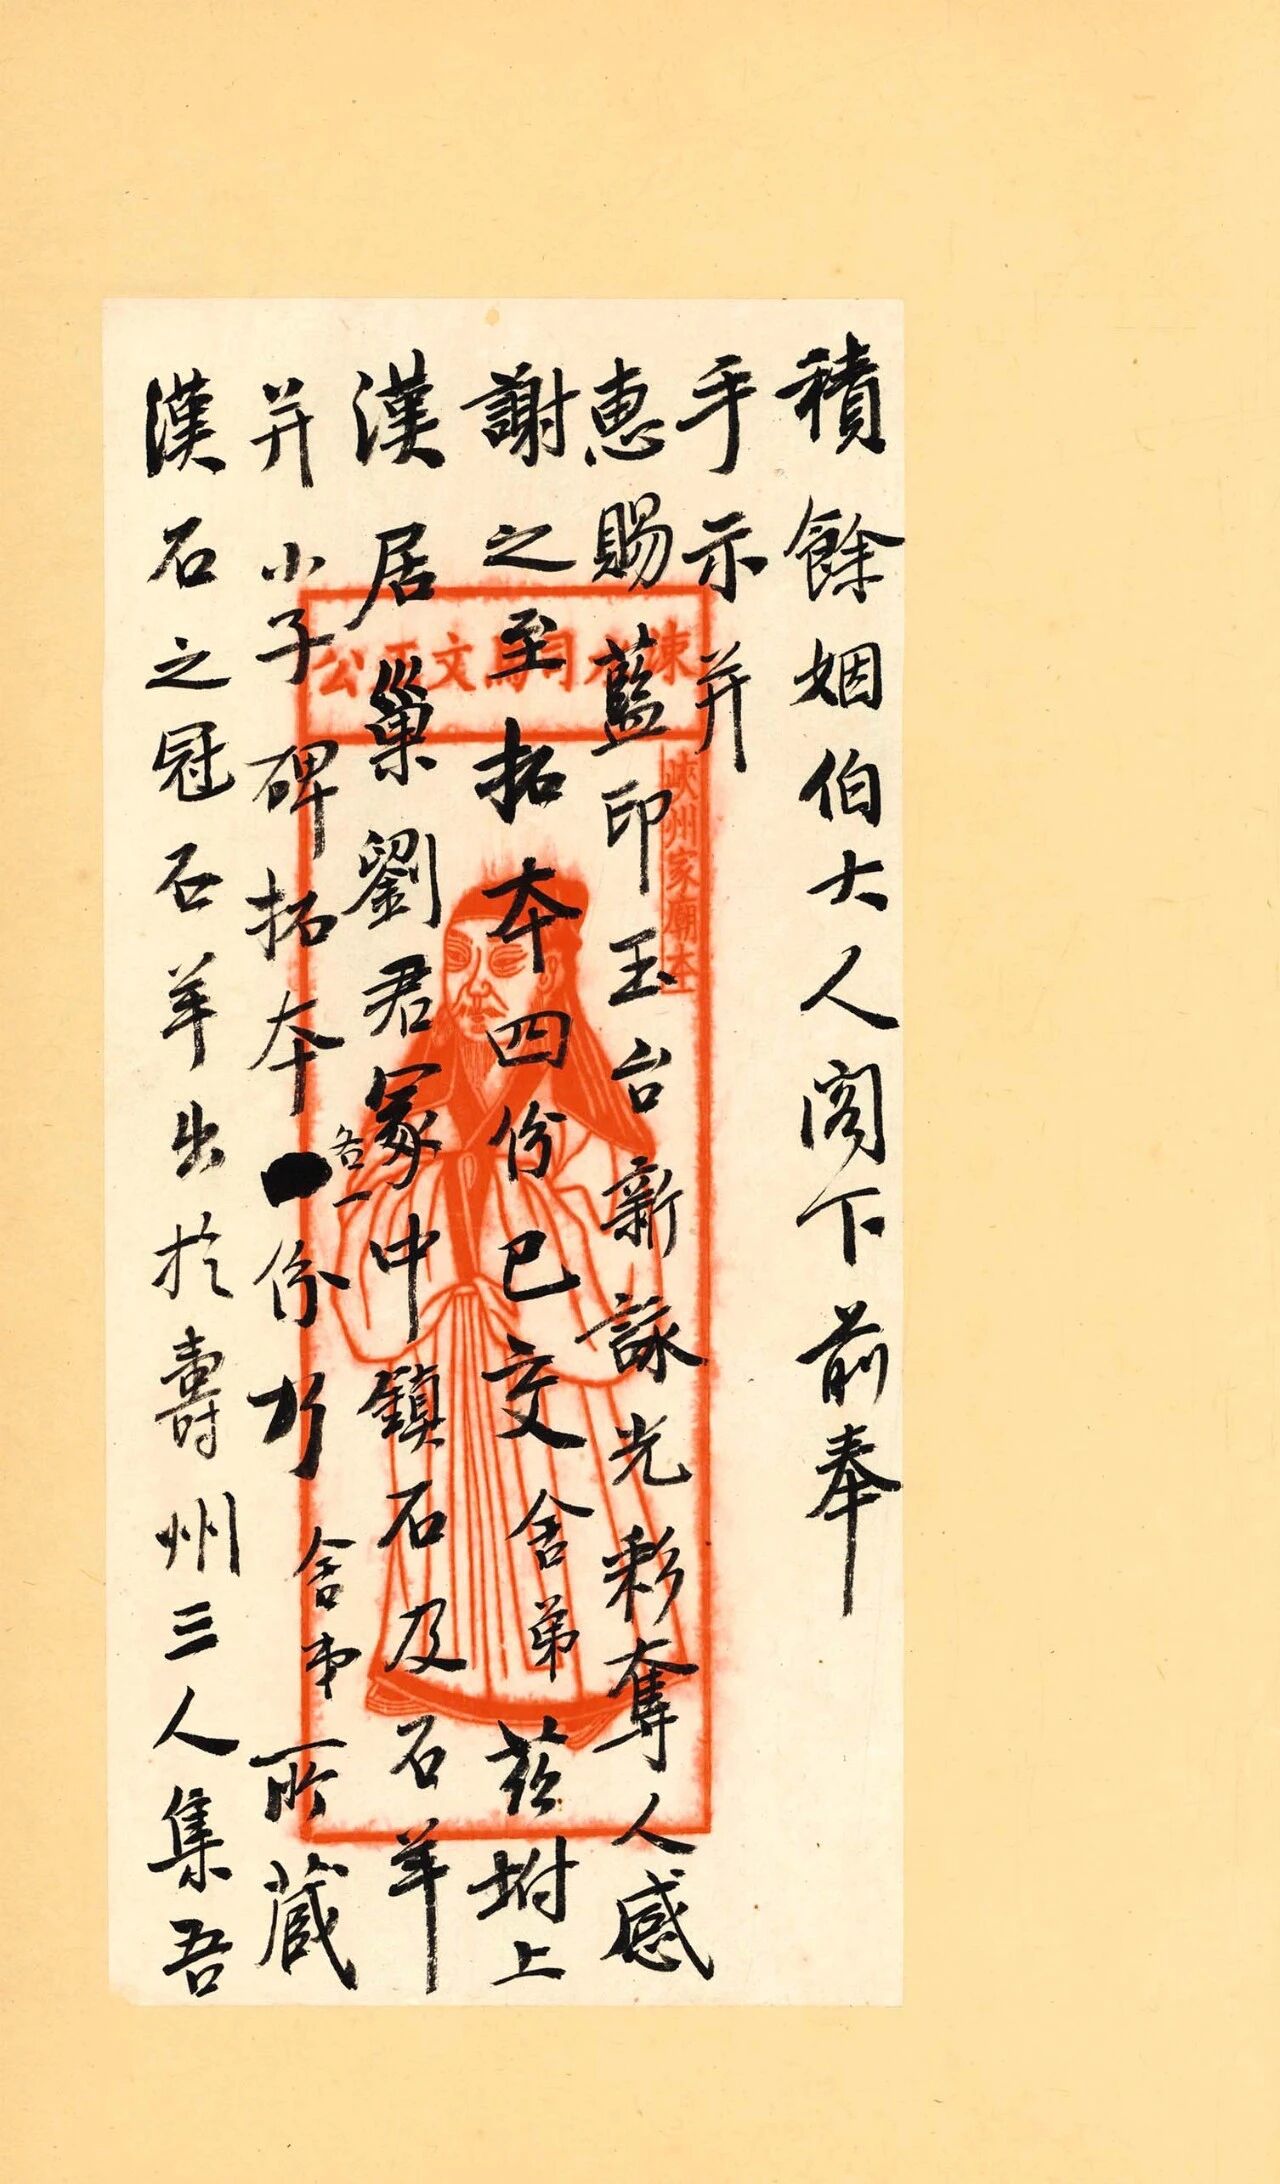 積餘姻伯大人閣下前奉
手示并
惠賜藍印玉台新詠光彩奪人感
謝之至拓本四份已交舍弟茲坿上
漢居巢劉君冢中鎮石及石羊
并小子碑拓本各一份皆舍弟所藏
漢石之冠石羊出於壽州三人集吾
涑水司馬文正公
峽州家廟本